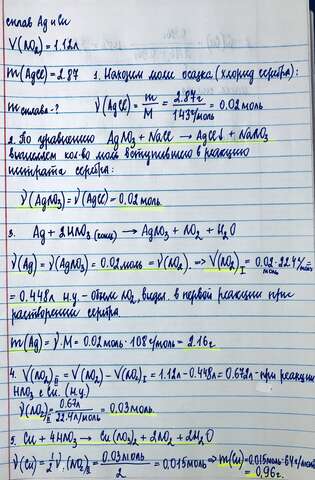 сплав Ag и Cu
V(NO₂) = 1.12л
m(AgCl) = 2.87 1. Находим моли осадка (хлорид серебра):
m сплава - ? ν(AgCl) = m/M = 2.87г/143г/моль = 0.02 моль
2. По уравнению AgNO₃ + NaCl → AgCl↓ + NaNO₃
вычисляем кол-во моль вступившего в реакцию
нитрата серебра:
ν(AgNO₃) = ν(AgCl) = 0.02 моль.
3. Ag + 2HNO₃ (конц) → AgNO₃ + NO₂ + H₂O
ν(Ag) = ν(AgNO₃) = 0.02 моль = ν(NO₂). ⇒ V(NO₂)I = 0.02 моль · 22.4 л/моль =
= 0.448л н.у. - объем NO₂, выдел. в первой реакции при
растворении серебра
m(Ag) = ν · M = 0.02 моль · 108 г/моль = 2.16г
4. V(NO₂)II = V(NO₂) - V(NO₂)I = 1.12л - 0.448л = 0.672л - при реакции
HNO₃ с Cu. (н.у.)
ν(NO₂)II = 0.67л/22.4л/моль = 0.03 моль.
5. Cu + 4HNO₃ → Cu(NO₃)₂ + 2NO₂ + 2H₂O
ν(Cu) = 1/2 ν(NO₂)II = 0.03 моль/2 = 0.015 моль ⇒ m(Cu) = 0.015 моль · 64 г/моль
= 0,96г.